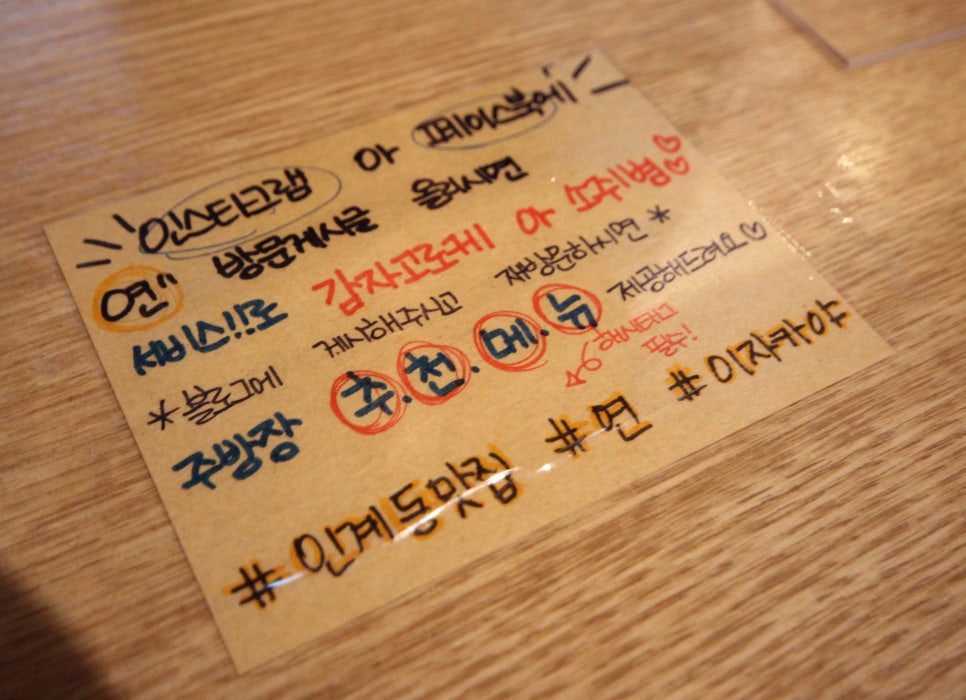 인스타그램 or 페이스북에
연" 방문게시글 올리시면
써비스!!로 감자고로케 or 소주1병♡♡
*블로그는 게시해주시고 재방문하시면*
주방장 추.천.메.뉴 제공해드려요♡
해시태그
필수!
#인계동맛집 #연 #이자카야